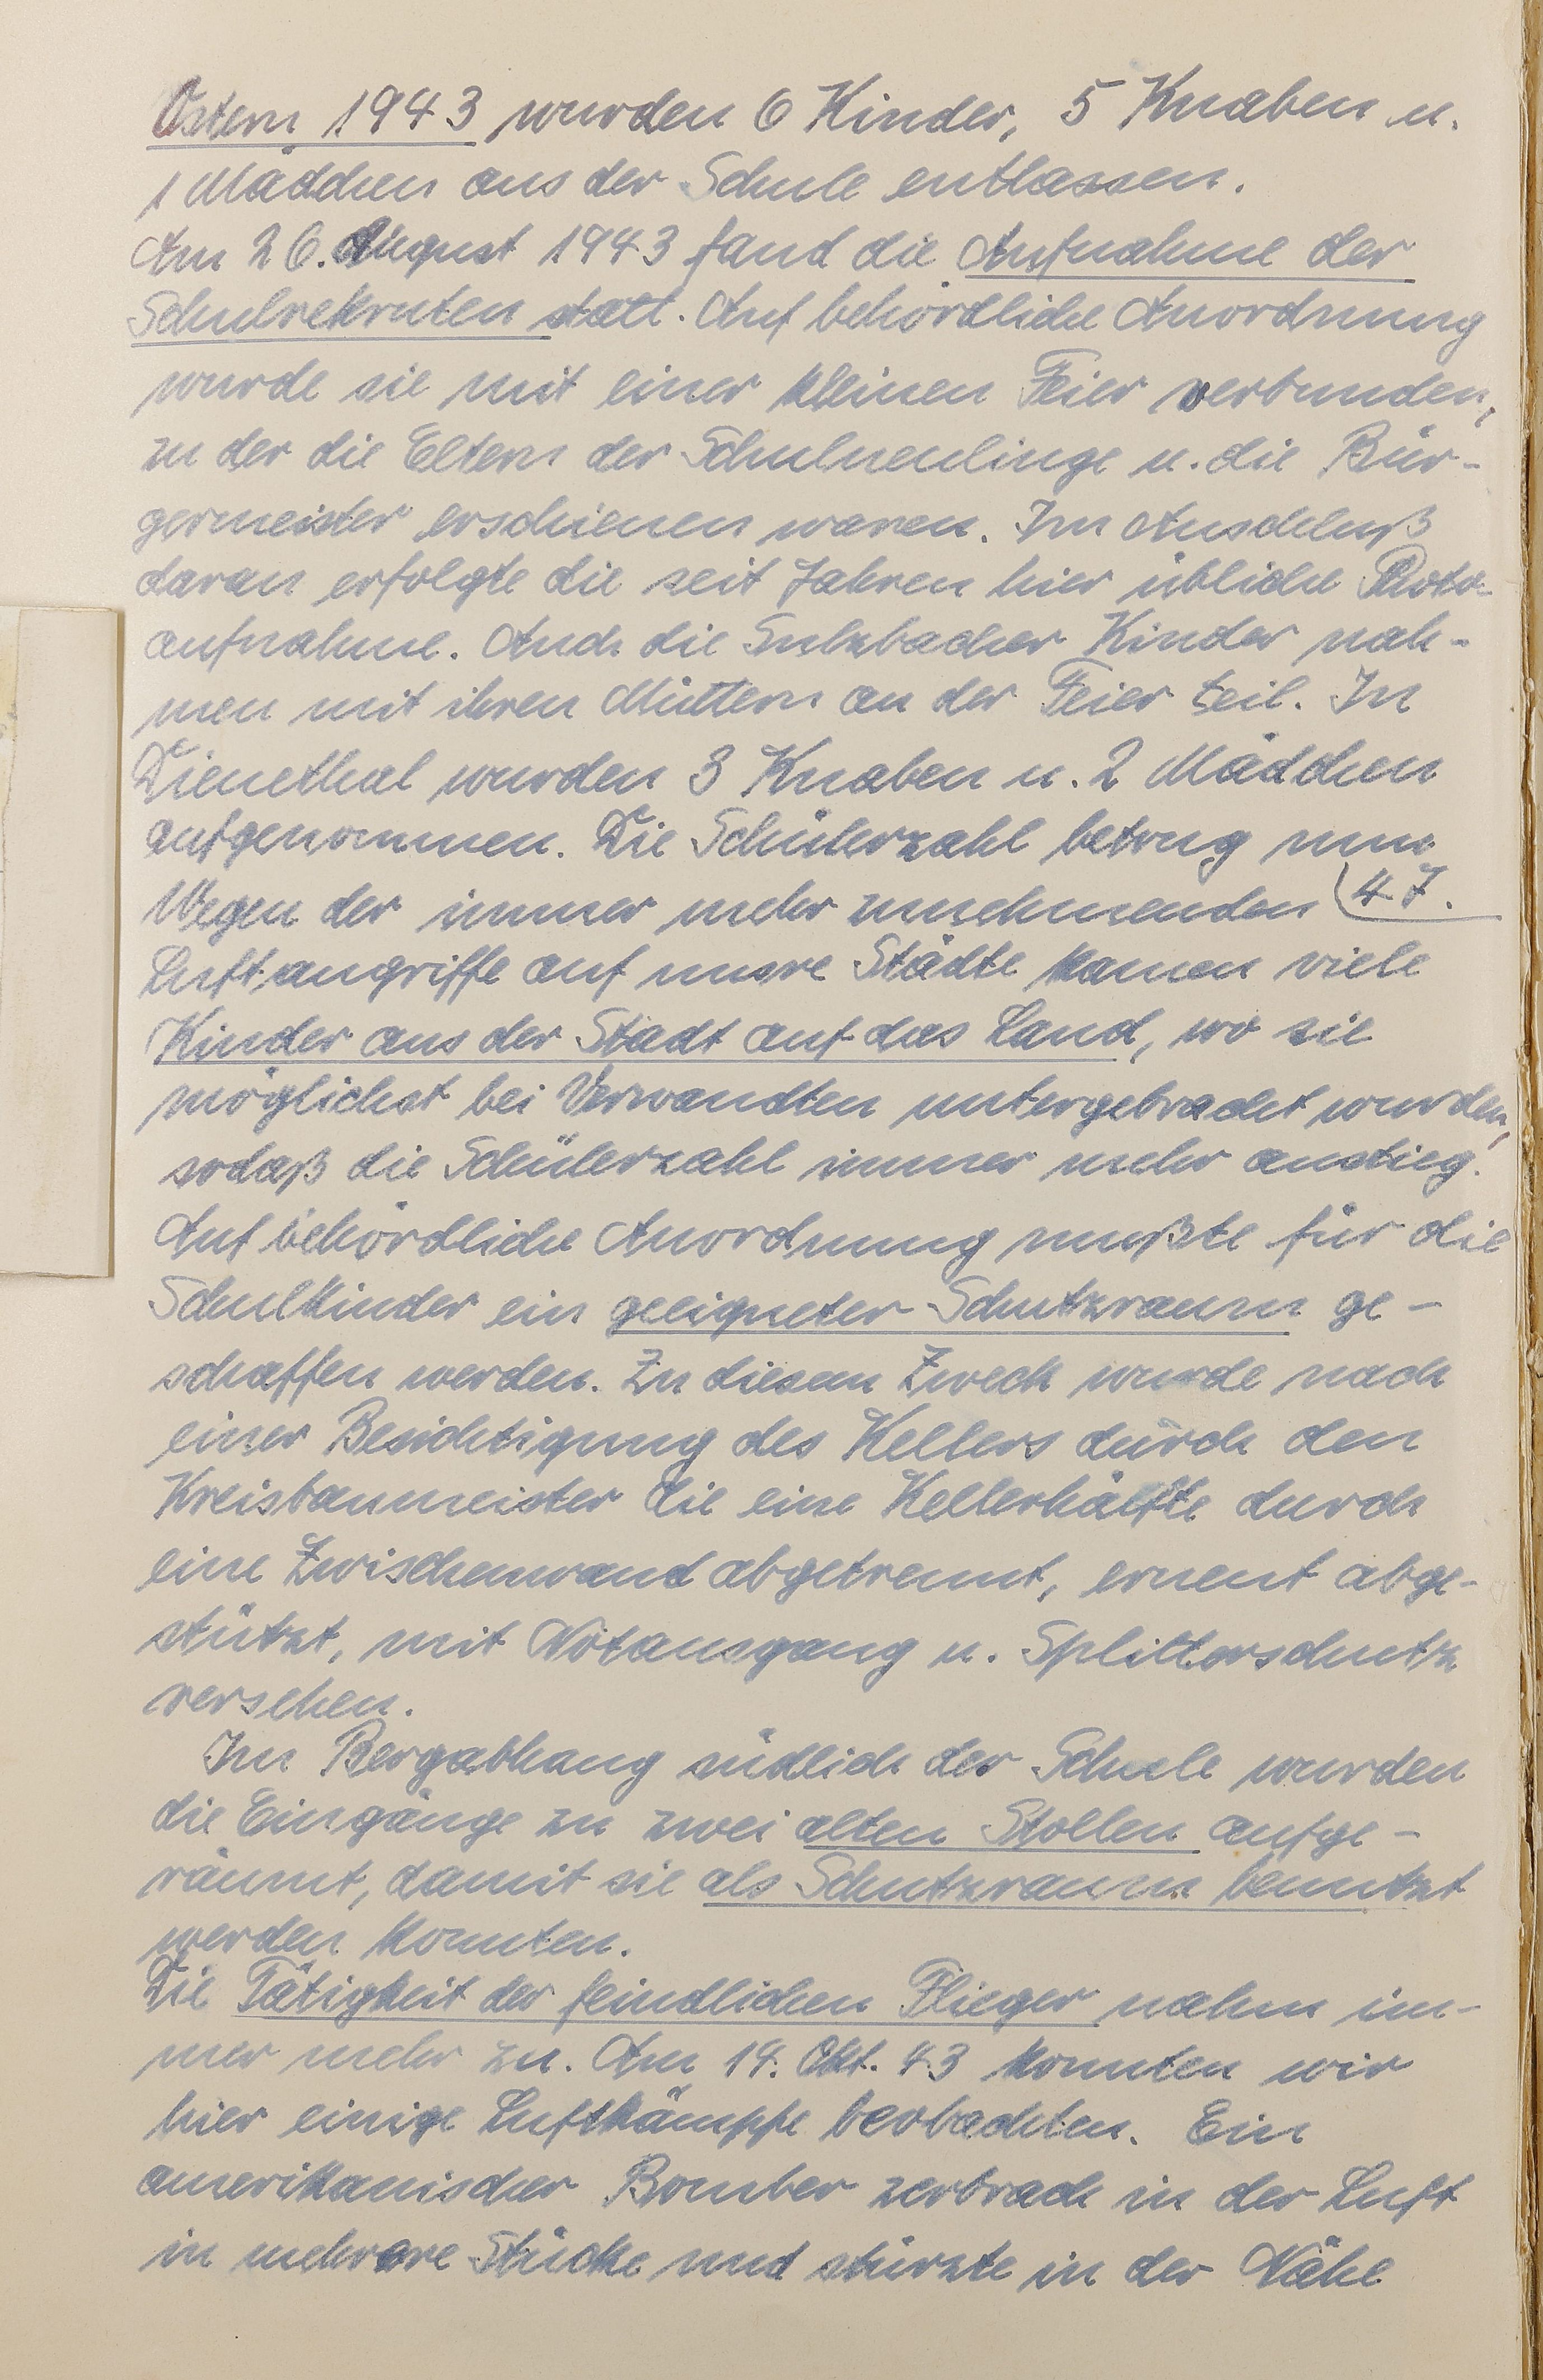 Ostern 1943 wurden 6 Kinder, 5 Knaben u.
1 Mädchen aus der Schule entlassen.
Am 26. August 1943 fand die Aufnahme der
Schulrekruten statt. Auf behördliche Anordnung
wurde sie mit einer kleinen Feier verbunden,
zu der die Eltern der Schulneulinge u. die Bür-
germeister erschienen waren. Im Anschluß
daran erfolgte die seit Jahren hier übliche Photo-
aufnahme. Auch die Sulzbacher Kinder nah-
men mit ihren Müttern an der Feier teil. In
Dienethal wurden 3 Knaben u. 2 Mädchen
aufgenommen. Die Schülerzahl betrug nun
47.
Wegen der immer mehr zunehmenden
Luftangriffe auf unsre Städte kamen viele
Kinder aus der Stadt auf das Land, wo sie
möglichst bei Verwandten untergebracht wurden,
sodaß die Schülerzahl immer mehr anstieg.
Auf behördliche Anordnung mußte für die
Schulkinder ein geeigneter Schutzraum ge-
schaffen werden. Zu diesem Zweck wurde nach
einer Besichtigung des Kellers durch den
Kreisbaumeister die eine Kellerhälfte durch
eine Zwischenwand abgetrennt, erneut abge-
stützt, mit Notausgang u. Splitterschutz
versehen.
Im Bergabhang südlich der Schule wurden
die Eingänge zu zwei alten Stollen aufge-
räumt, damit sie als Schutzraum benutzt
werden konnten.
Die Tätigkeit der feindlichen Flieger nahm im-
mer mehr zu. Am 14. Okt. 43 konnten wir
hier einige Luftkämpfe beobachten. Ein
amerikanischer Bomber zerbrach in der Luft
in mehrere Stücke und stürzte in der Nähe